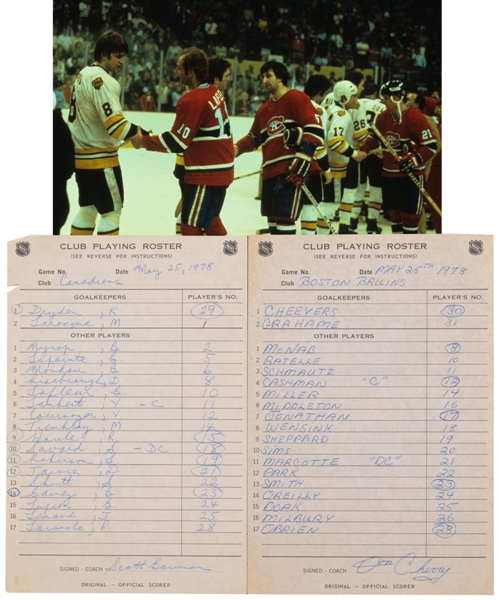 8
10
17
26
21
CLUB PLAYING ROSTER
(SEE REVERSE FOR INSTRUCTIONS)
Game No. Date May 25, 1978
Club Canadiens
GOALKEEPERS PLAYER'S NO.
1 Dryden, K 29
2 Larocque, M 1
OTHER PLAYERS
1 Nyrop, B 2
2 Lapointe, G 5
3 Mondou, P 6
4 Risebrough, D 8
5 Lafleur, G 10
6 Lambert - C
7 Cournoyer, Y 12
8 Tremblay, M 14
9 Houle, R 15
10 Savard, S - DC 18
11 Robinson, L 19
12 Jarvis, D 21
13 Shutt, S 22
14 Gainey, B 23
15 24
16 Lemaire, J 25
17 28
SIGNED - COACH Scott Bowman
ORIGINAL - OFFICIAL SCORER
CLUB PLAYING ROSTER
(SEE REVERSE FOR INSTRUCTIONS)
Game No. Date MAY 25TH 1978
Club BOSTON BRUINS
GOALKEEPERS PLAYER'S NO.
1 CHEEVERS 30
2 GRAHAME 31
OTHER PLAYERS
1 McNAB 8
2 RATELLE 10
3 SCHMAUTZ 11
4 CASHMAN "C" 12
5 MILLER 14
6 MIDDLETON 16
7 JONATHAN 17
8 WENSINK 18
9 SHEPPARD 19
10 SIMS 20
11 MARCOTTE "DC" 21
12 PARK 22
13 SMITH 23
14 O'REILLY 24
15 DOAK 25
16 MILBURY 26
17 O'BRIEN 28
SIGNED - COACH Don Cherry
ORIGINAL - OFFICIAL SCORER